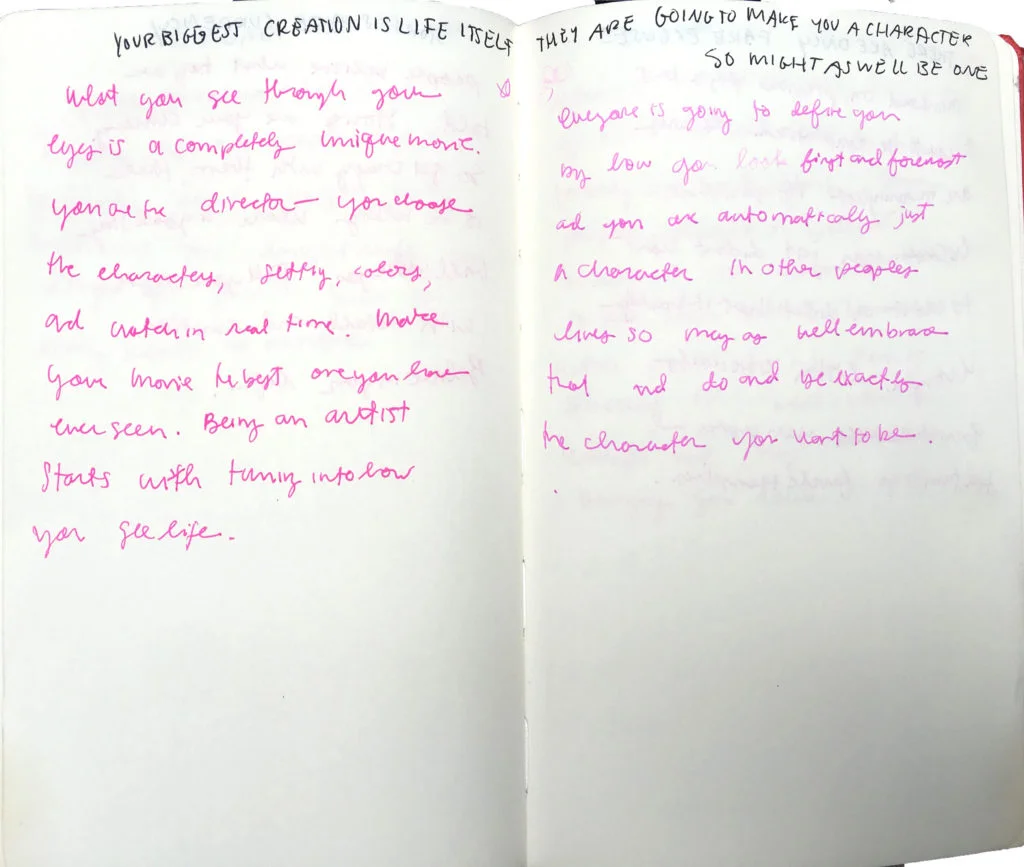 YOUR BIGGEST CREATION IS LIFE ITSELF
What you see through your
eyes is a completely unique movie.
you are the director – you choose
the characters, setting, colors,
and watch in real time. Make
your movie the best one you have
ever seen. Being an artist
starts with tuning into how
you see life.
THEY ARE GOING TO MAKE YOU A CHARACTER
SO MIGHT AS WELL BE ONE
everyone is going to define you
by how you look first and foremost
and you are automatically just
a character in other peoples
lives so may as well embrace
that and do and be exactly
the character you want to be.